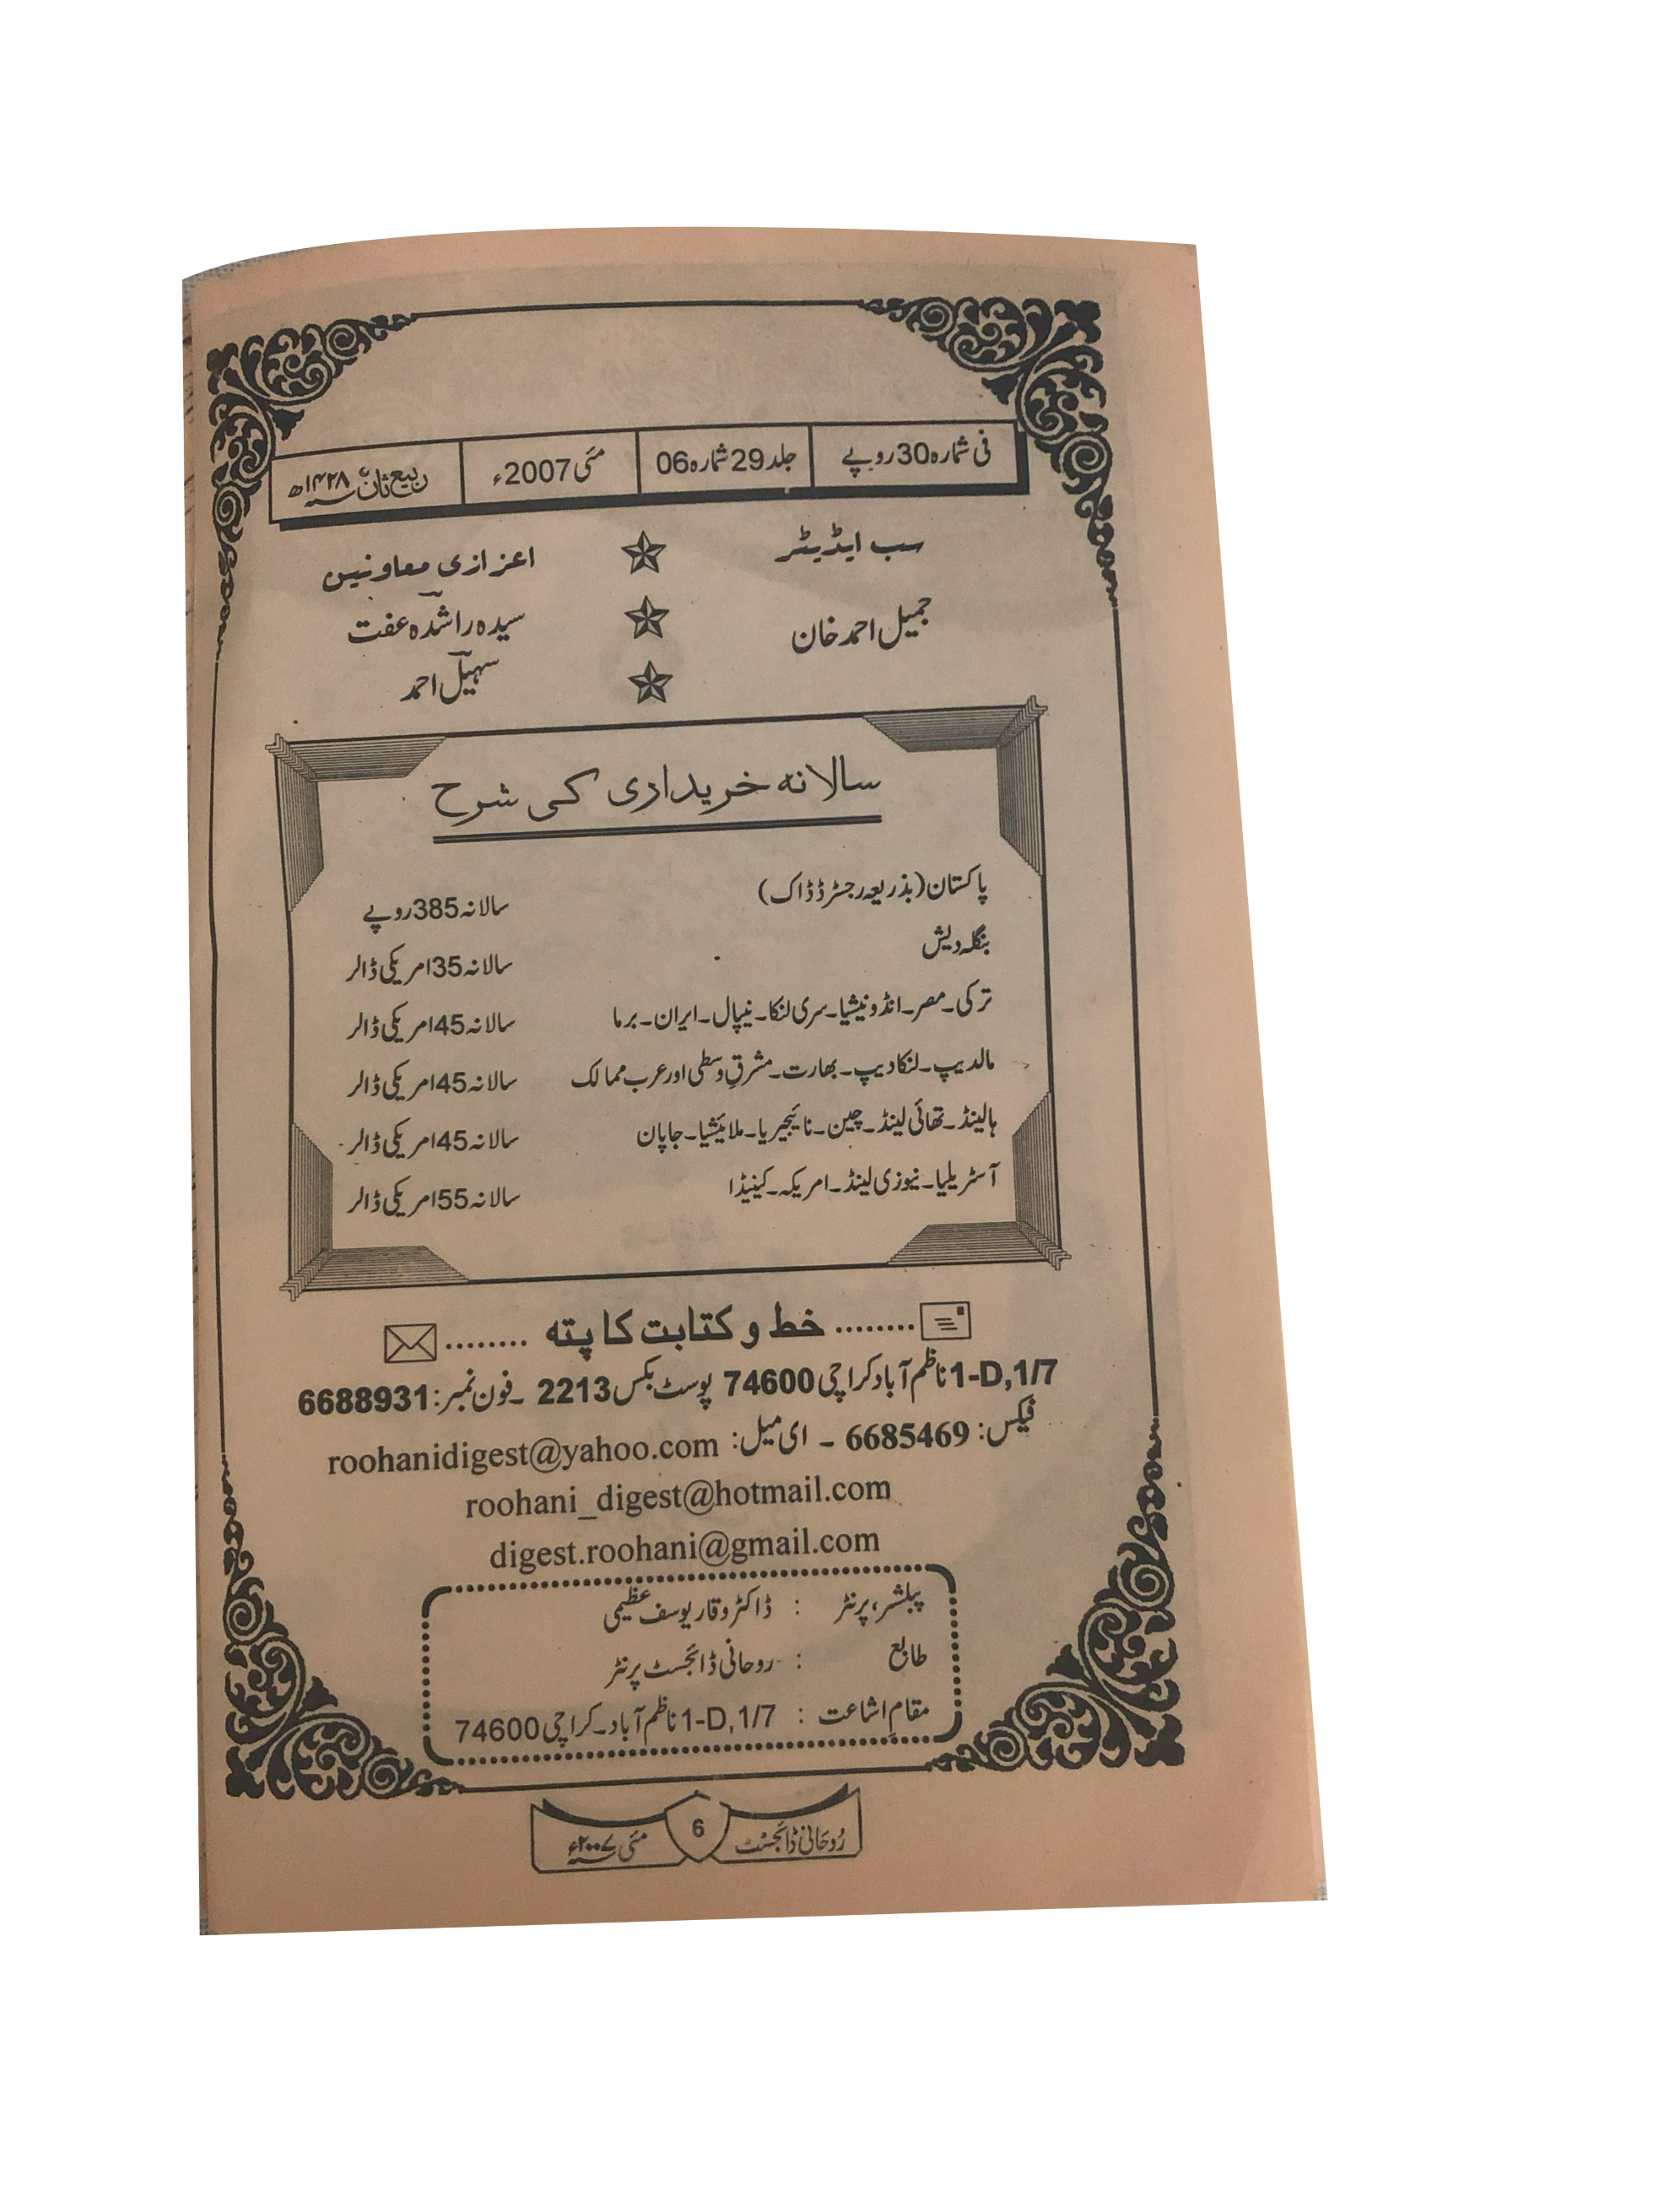 فی شمارہ 30 روپے جلد 29 شمارہ 06 مئی 2007ء ربیع ثانی ۱۴۲۸ھ
سب ایڈیٹر اعزازی معاونین
جمیل احمد خان سیدہ راشدہ عفت
سہیل احمد
سالانہ خریداری کی شرح
پاکستان (بذریعہ رجسٹرڈ ڈاک) سالانہ 385 روپے
بنگلہ دیش سالانہ 35 امریکی ڈالر
ترکی۔ مصر۔ انڈونیشیا۔ سری لنکا۔ نیپال۔ ایران۔ برما سالانہ 45 امریکی ڈالر
مالدیپ۔ لنکادیپ۔ بھارت۔ مشرقِ وسطٰی اور عرب ممالک سالانہ 45 امریکی ڈالر
ہالینڈ۔ تھائی لینڈ۔ چین۔ نائیجیریا۔ ملائیشیا۔ جاپان سالانہ 45 امریکی ڈالر
آسٹریلیا۔ نیوزی لینڈ۔ امریکہ۔ کینیڈا سالانہ 55 امریکی ڈالر
........ خط و کتابت کا پتہ ........
1-D,1/7 ناظم آباد کراچی 74600 پوسٹ بکس 2213 ۔ فون نمبر: 6688931
فیکس: 6685469 ۔ ای میل: roohanidigest@yahoo.com
roohani_digest@hotmail.com
digest.roohani@gmail.com
پبلشر، پرنٹر : ڈاکٹر وقار یوسف عظیمی
طابع : روحانی ڈائجسٹ پرنٹر
مقامِ اشاعت : 1-D,1/7 ناظم آباد۔ کراچی 74600
رُوحَانی ڈائجسٹ 6 مئی ۲۰۰۷ء